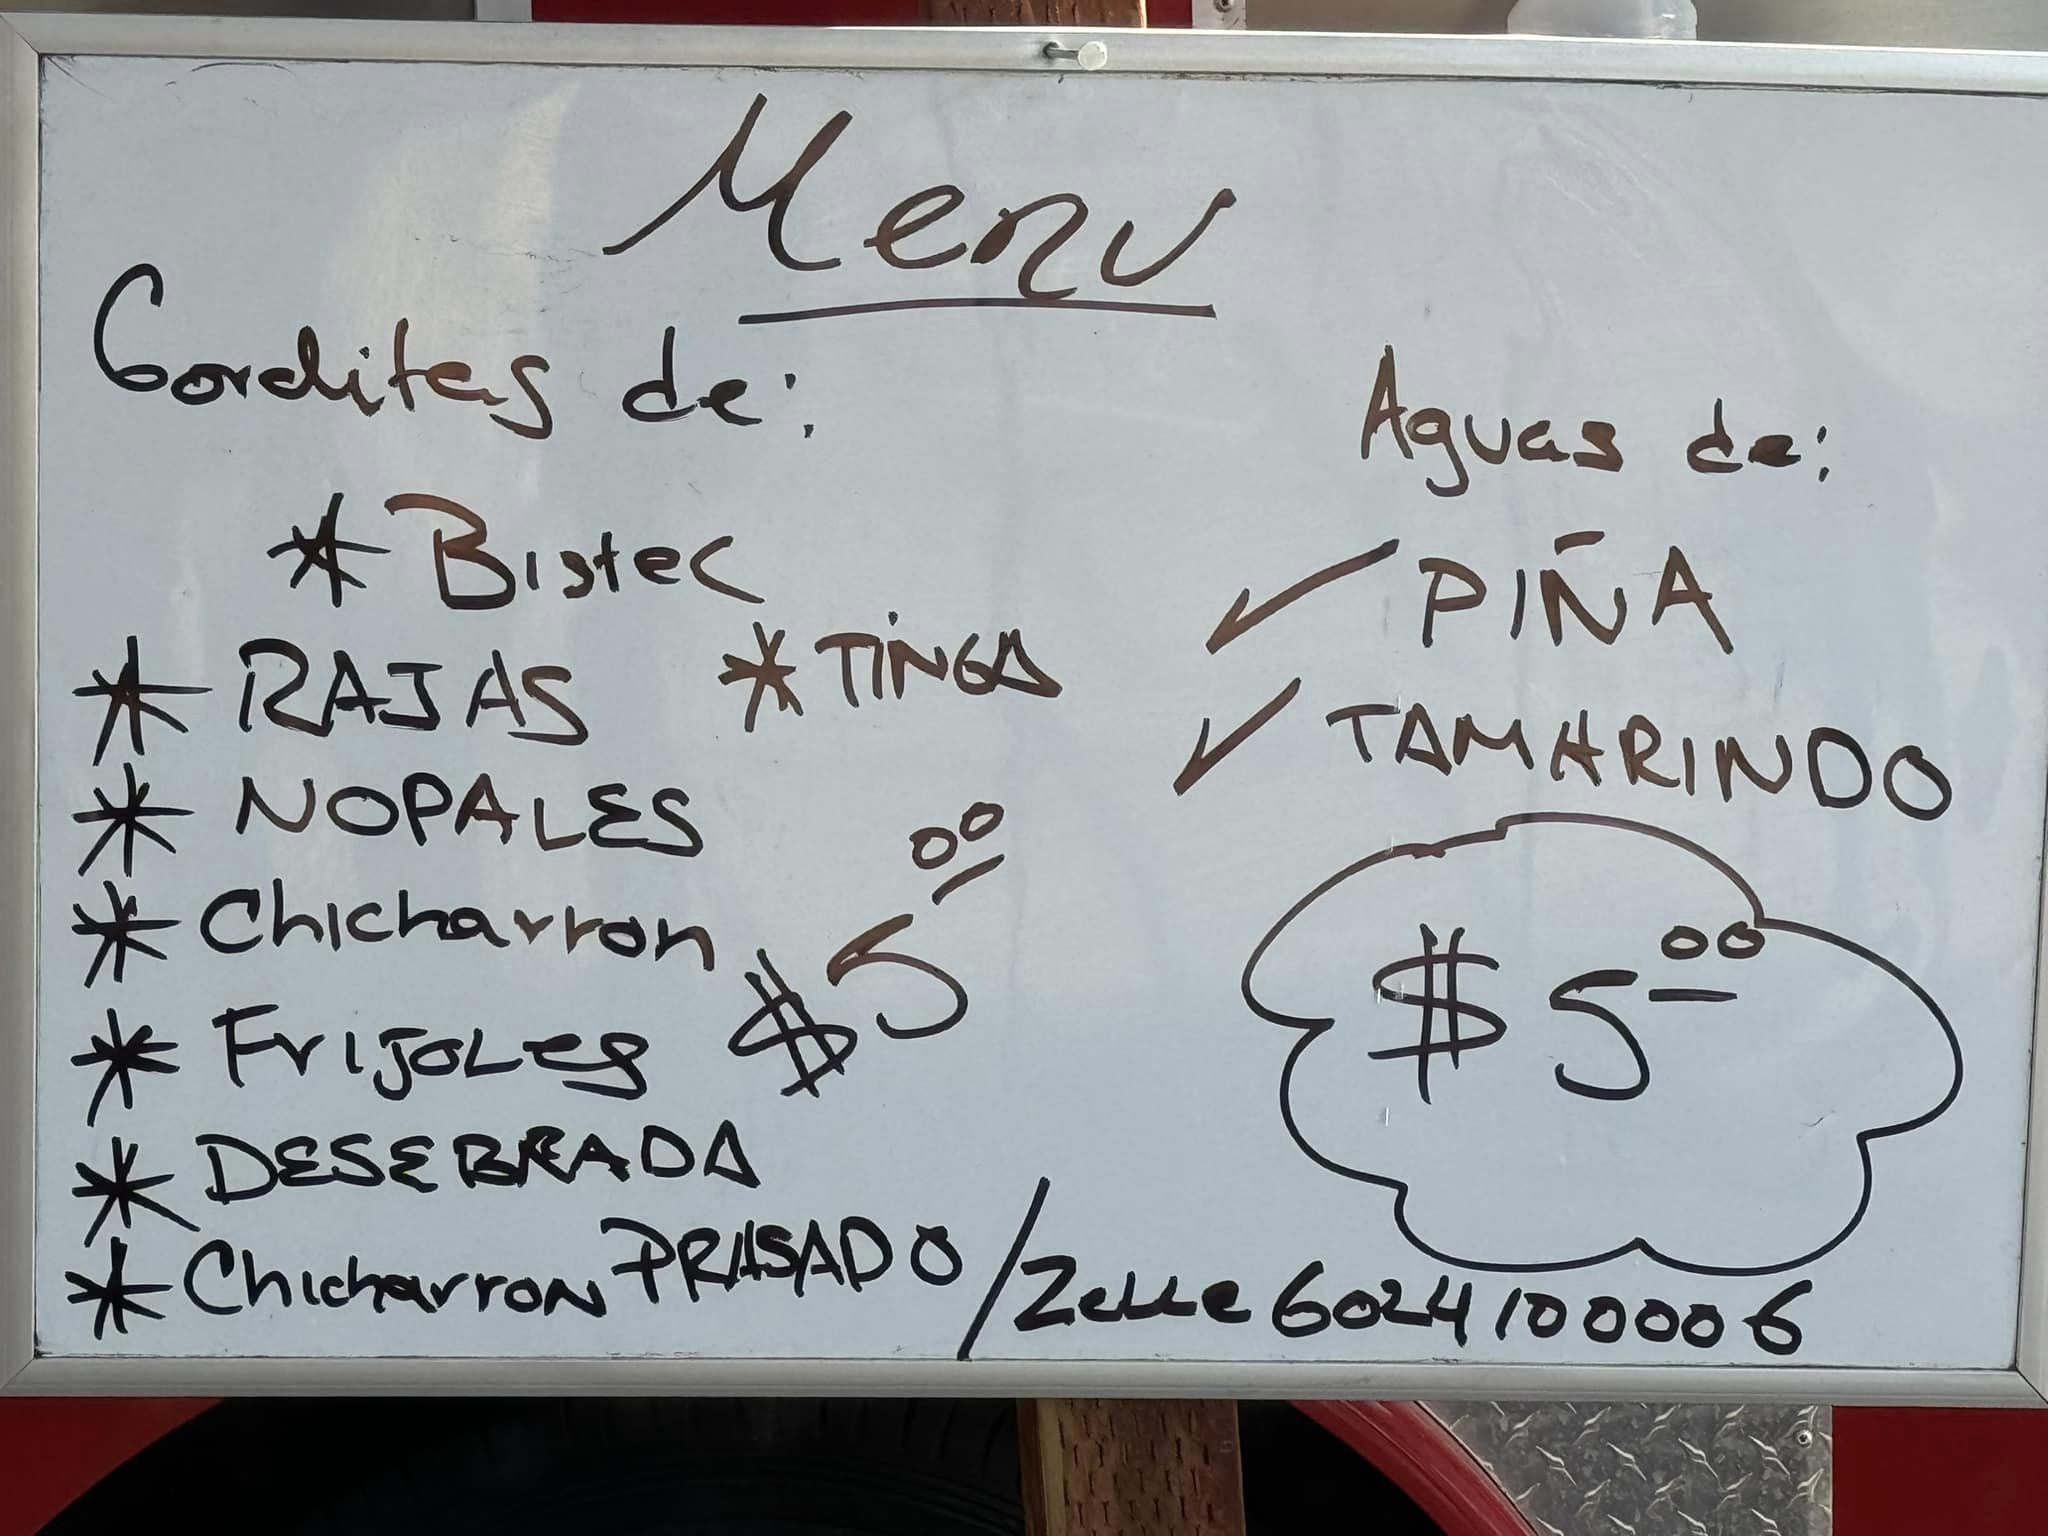 Menu
Gorditas de:
* Bistec
* RAJAS * TINGA
* NOPALES
* Chicharron
* FrIJOLes
* DESEBRADA
* Chicharron PRASADO
$5.00
Aguas de:
✓ PIÑA
✓ TAMARINDO
$5.00
/Zelle 6024100006